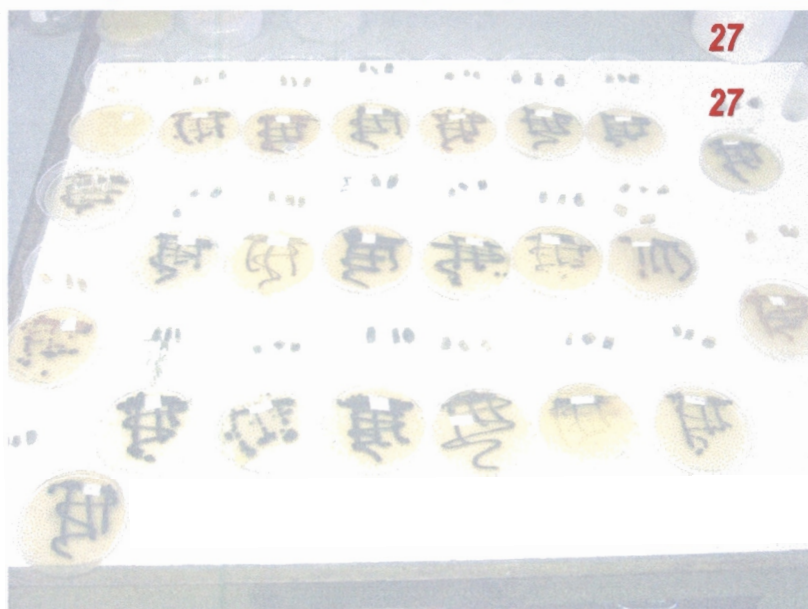 27
27